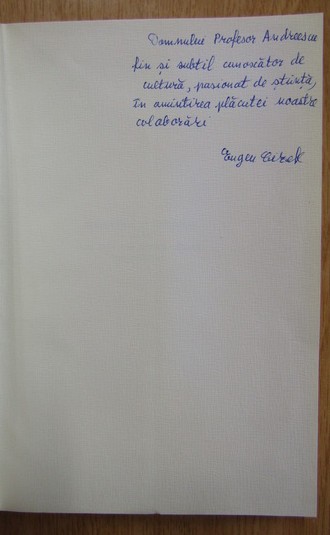 Domnului Profesor Andreescu
fin și subtil cunoscător de
cultură, pasionat de știință,
în amintirea plăcutei noastre
colaborări
Eugen Cizek